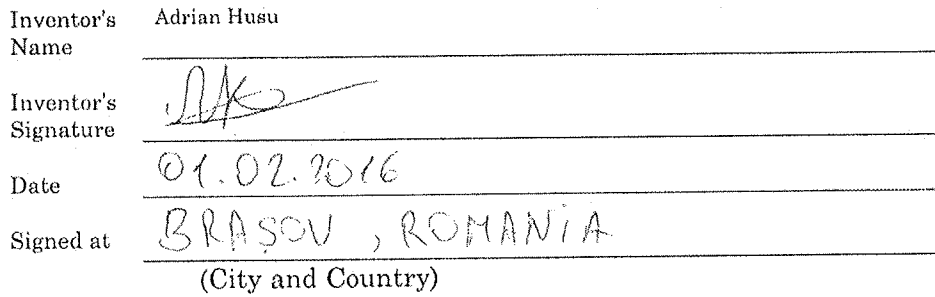 Inventor's Name Adrian Husu
Inventor's Signature
Date 01.02.2016
Signed at BRAŞOV, ROMANIA
(City and Country)